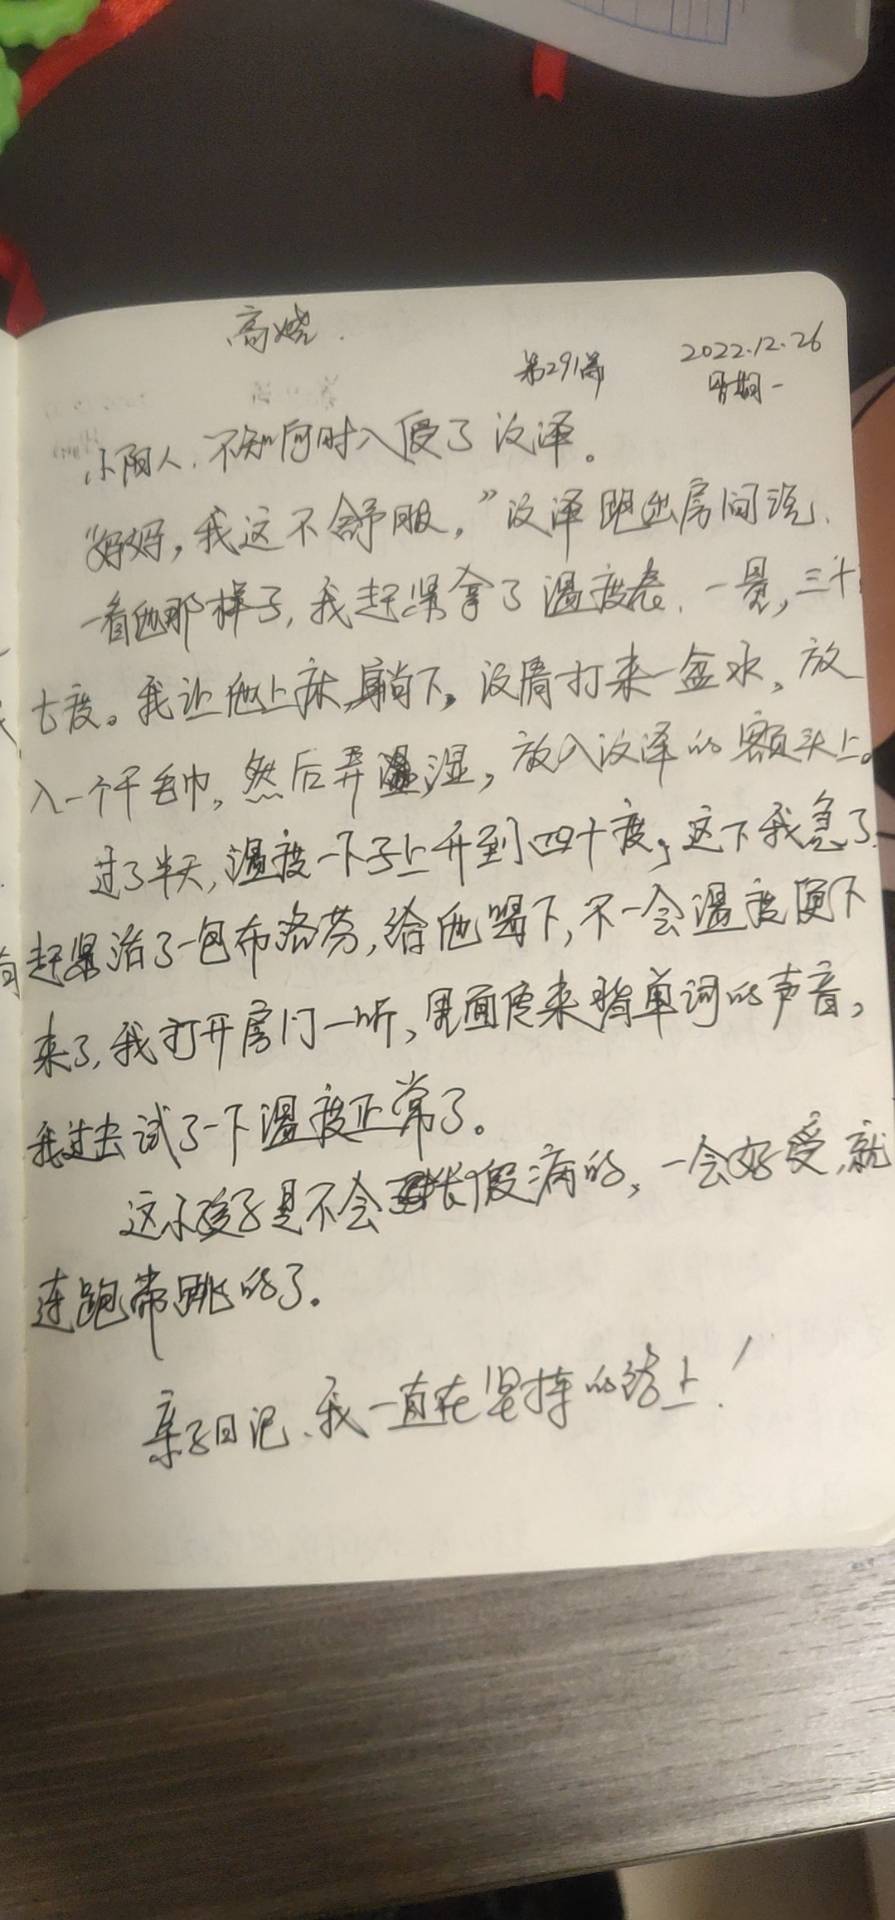 高烧.
第291篇 2022.12.26
星期一
小阳人,不知何时入侵了汶泽。
“妈妈,我这不舒服,”汶泽跑出房间说,
一看他那样子,我赶紧拿了温度表,一量,三十
七度。我让他上床躺下,没屑打来一盆水,放
入一个干毛巾,然后弄湿,放入汶泽的额头上。
过了半天,温度一下子上升到四十度,这下我急了,
赶紧沿了一包布洛芬,给他喝下,不一会温度便下
来了,我打开房门一听,里面传来背单词的声音,
我过去试了一下温度正常了。
这小孩子是不会装假病的,一会好受,就
连跑带跳的了。
亲子日记,我一直在坚持的路上!